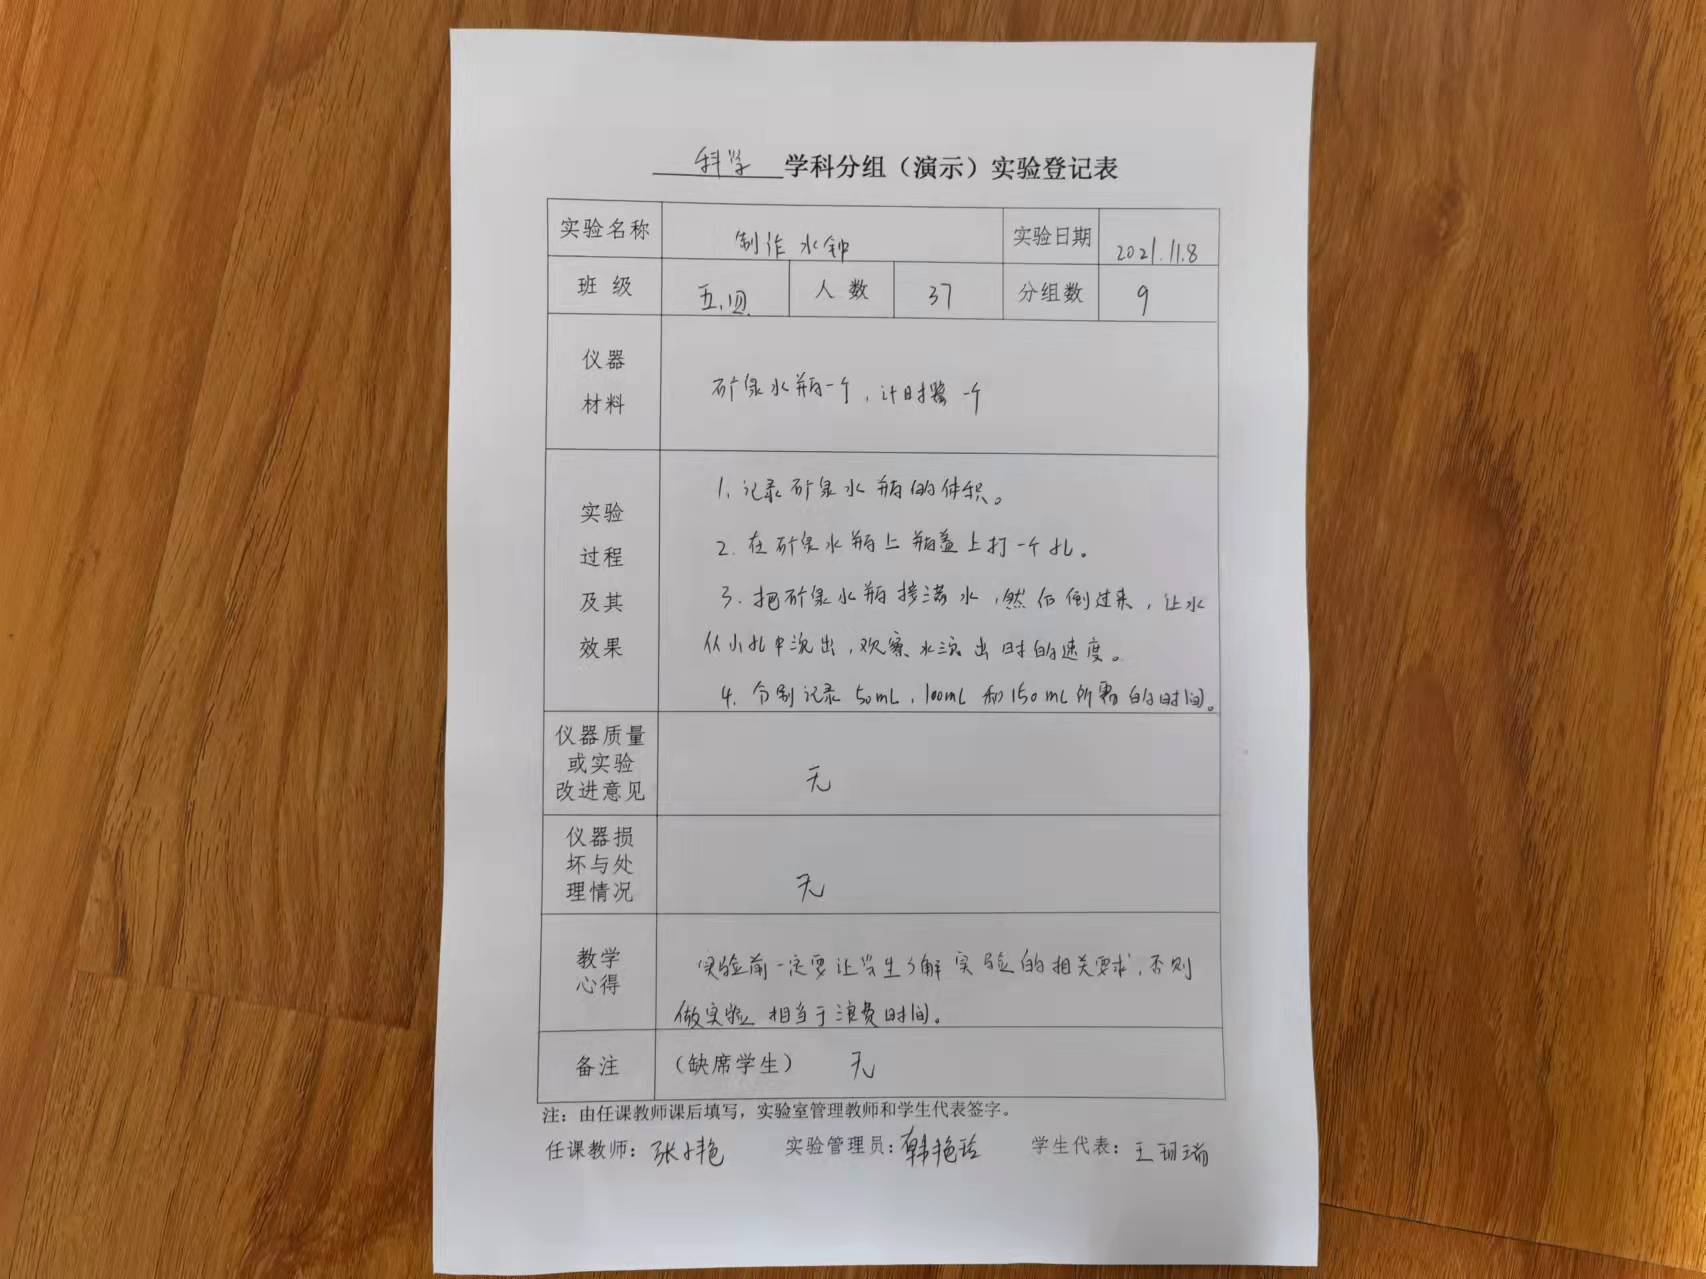 科学 学科分组（演示）实验登记表
实验名称 制作水钟 实验日期 2021.11.8
班 级 五.四 人 数 37 分组数 9
仪器
材料
矿泉水瓶一个，计时器一个
实验
过程
及其
效果
1.记录矿泉水瓶的体积。
2.在矿泉水瓶上瓶盖上打一个孔。
3.把矿泉水瓶接满水，然后倒过来，让水
从小孔中流出，观察水流出时的速度。
4.分别记录50mL，100mL和150mL所需的时间。
仪器质量
或实验
改进意见
无
仪器损
坏与处
理情况
无
教学
心得
实验前一定要让学生了解实验的相关要求，否则
做实验相当于浪费时间。
备注 （缺席学生） 无
注：由任课教师课后填写，实验室管理教师和学生代表签字。
任课教师：张小艳 实验管理员：韩艳玲 学生代表：王珂瑞